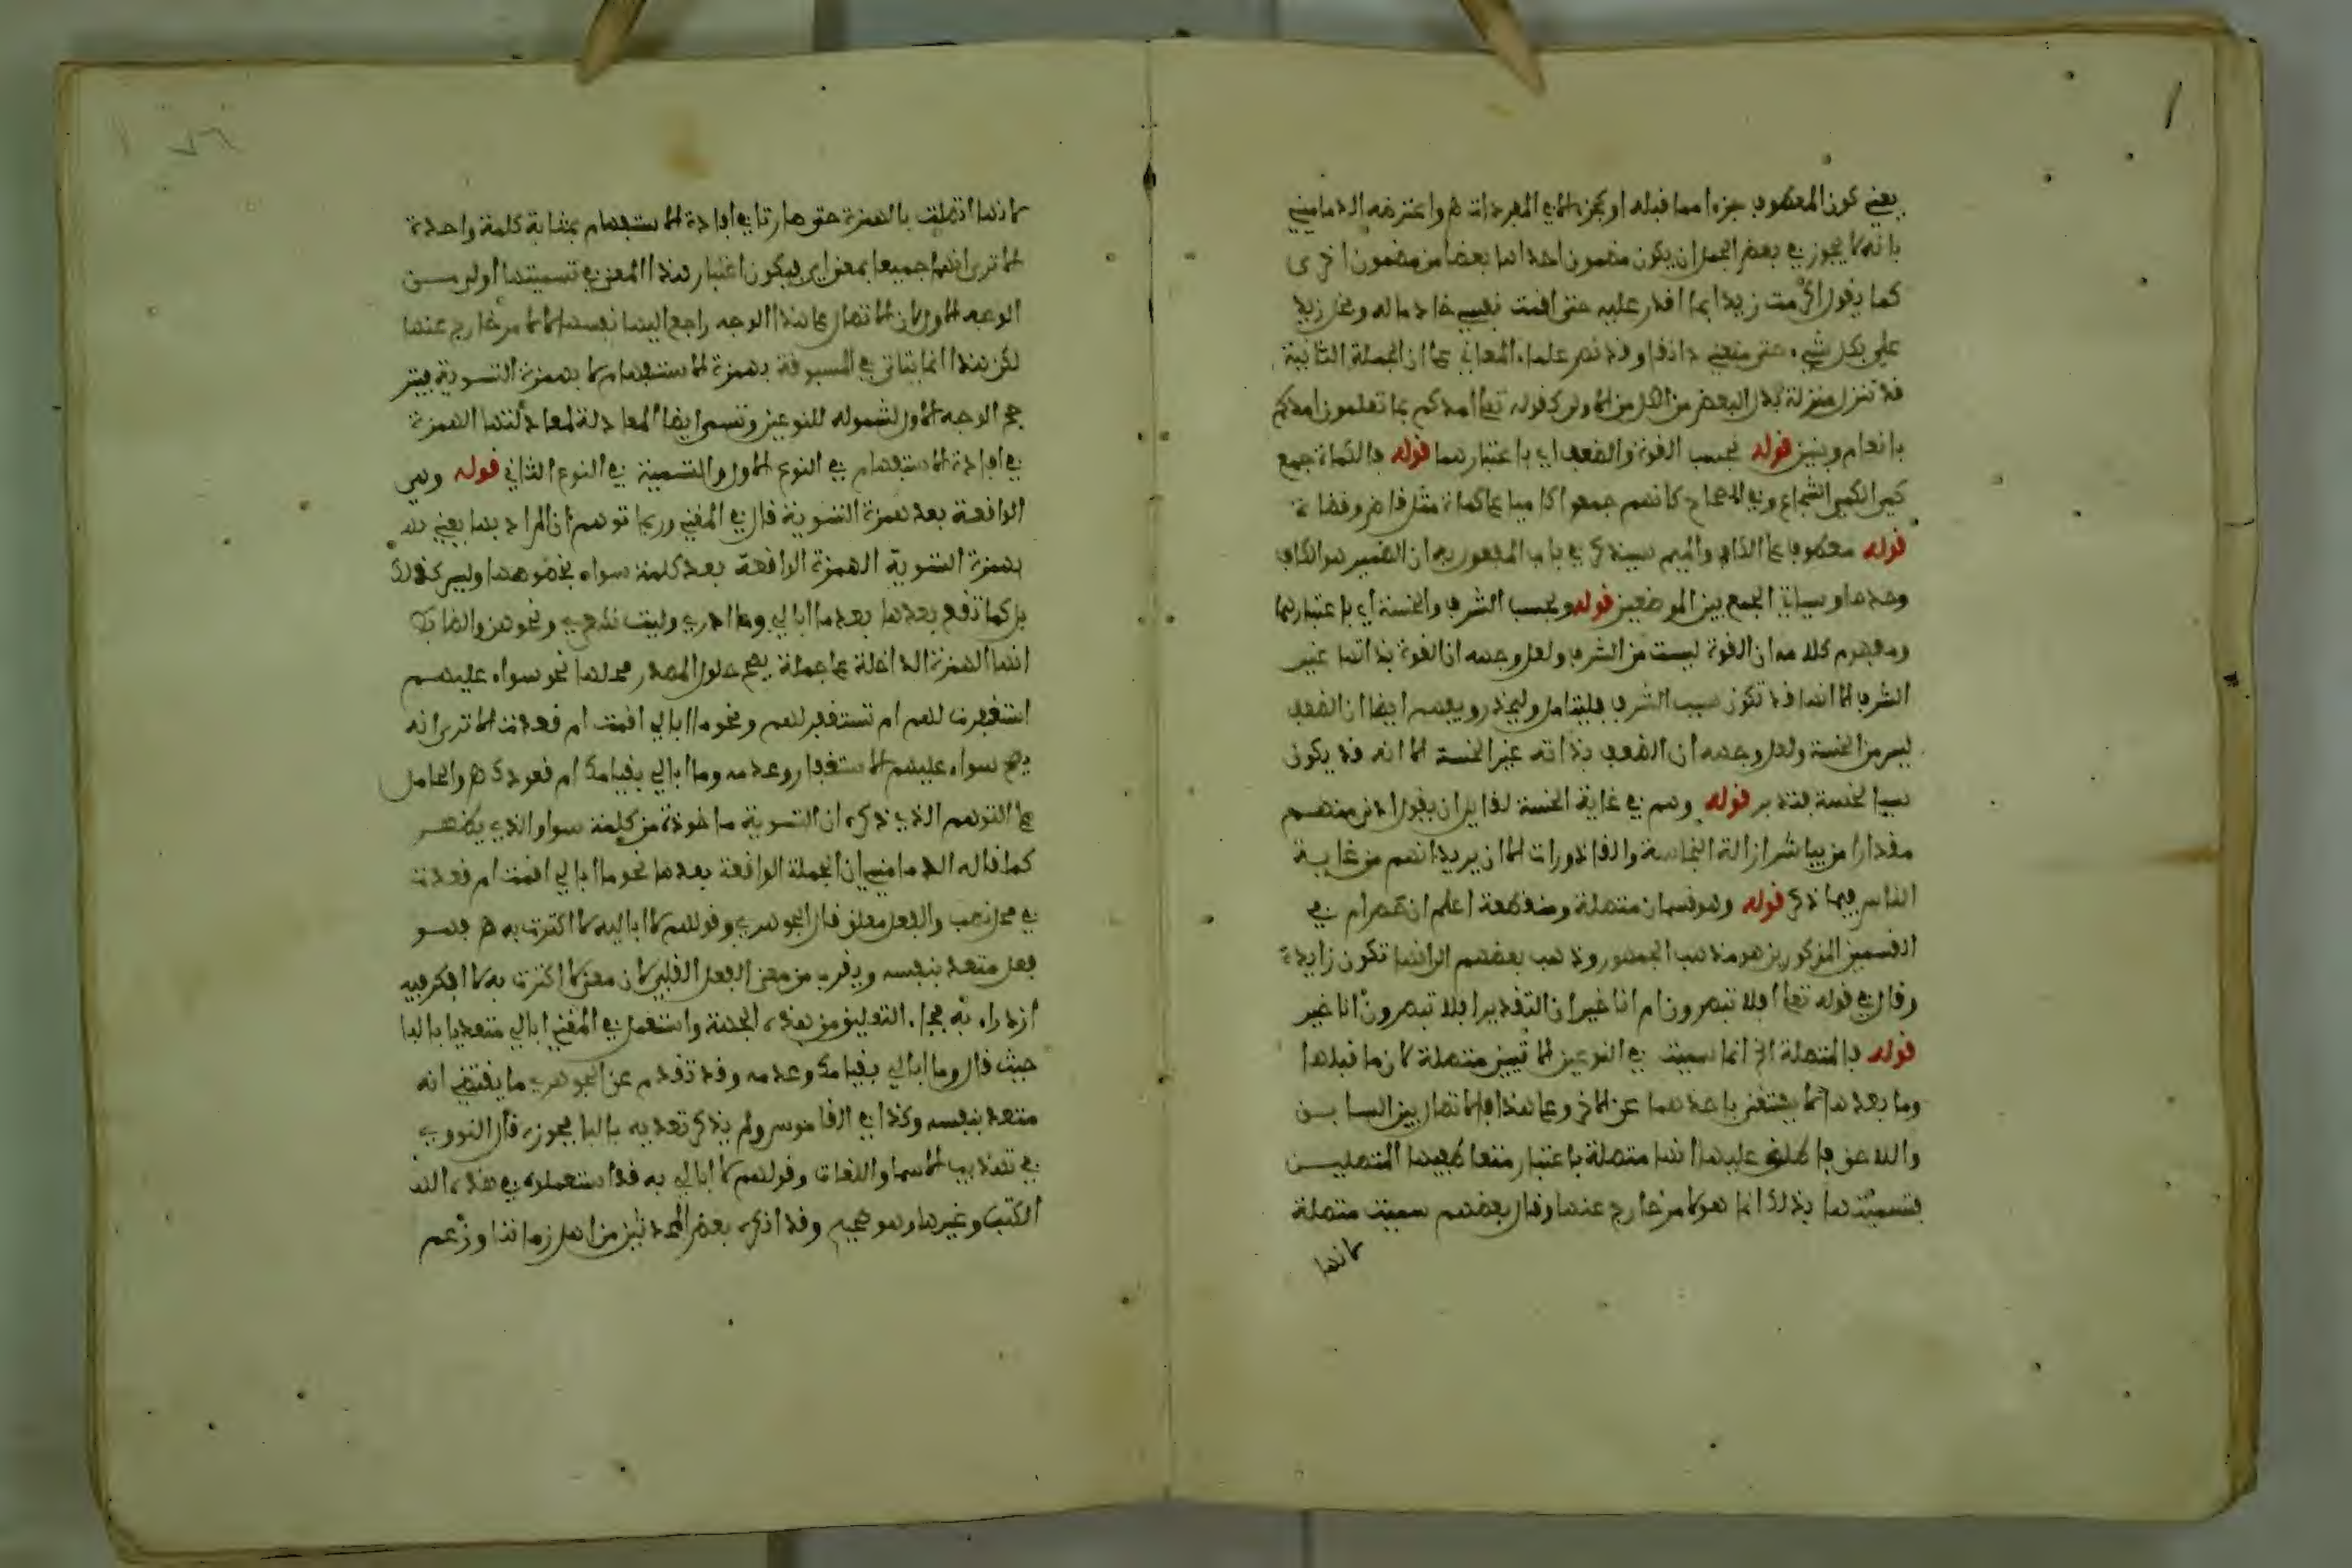 يعني كون المعطوف جزءا مما قبله او كجزء الا في المفردات هـ واعترضه الدماميني
بانه لا يجوز في بعض الجمل ان يكون مضمون احداها بعضا من مضمون اخرى
كما يقول اكرمت زيدا بما اقدر عليه حتى اقمت نفسي خادما له وبخل زيد
علي بكل شيء حتى منعني دانقا وقد نص علماء المعاني على ان الجملة الثانية
قد تنزل منزلة بدل البعض من الكل من الاولى كقوله تعالى امدكم بما تعلمون امدكم
بانعام وبنين قوله بحسب القوة والضعف اي باعتبارهما قوله فالكماة جمع
كمي الكمي الشجاع وفي الصحاح كانهم جمعوا كاميا على كماة مثل قاض وقضاة
قوله معطوف على الكاف والميم سيذكر في باب المفعول به ان الضمير هو الكاف
وحدها وسياتي الجمع بين الموضعين قوله وبحسب الشرف والخسة اي باعتبارهما
ومفهوم كلامه ان القوة ليست من الشرف ولعل وجهه ان القوة بذاتها غير
الشرف الا انها قد تكون سبب الشرف فليتامل وليحذر ويفهم ايضا ان الضعف
ليس من الخسة ولعل وجهه ان الضعف بذاته غير الخسة الا انه قد يكون
سببا لخسة فتدبر قوله وهم في غاية الخسة لقايل ان يقول ادنى منهم
مقدارا من يباشر ازالة النجاسة والقاذورات الا ان يريد انهم من غاية
الناس فيما ذكر قوله وهو قسمان متصلة ومنقطعة اعلم ان حصر ام في
القسمين المذكورين هو مذهب الجمهور وذهب بعضهم الى انها تكون زايدة
وقال في قوله تعالى افلا تبصرون ام انا خير ان التقدير افلا تبصرون انا خير
قوله فالمتصلة الخ انما سميت في النوعين الاتيين متصلة لان ما قبلها
وما بعدها لا يستغنى باحدهما عن الاخر وعلى هذا فالاتصال بين السابق
واللاحق فاطلق عليها انها متصلة باعتبار متعاطفيها المتصلين
فتسميتها بذلك انما هو لامر خارج عنها وقال بعضهم سميت متصلة
لانها
لانها اتصلت بالهمزة حتى صارتا في افادة الاستفهام بمثابة كلمة واحدة
الا ترى انهما جميعا بمعنى اي فيكون اعتبار هذا المعنى في تسميتها اولى من
الوجه الاول لان الاتصال على هذا الوجه راجع اليها نفسها لا لامر خارج عنها
لكن هذا انما يتاتى في المسبوقة بهمزة الاستفهام لا بهمزة التسوية فيتر
جح الوجه الاول لشموله للنوعين وتسمى ايضا المعادلة لمعادلتها الهمزة
في افادة الاستفهام في النوع الاول والتسوية في النوع الثاني قوله وهي
الواقعة بعد همزة التسوية قال في المغني وربما توهم ان المراد بها يعني
بهمزة التسوية الهمزة الواقعة بعد كلمة سواء بخصوصها وليس كذلك
بل كما تقع بعدها بعد ما ابالي وما ادري وليت شعري ونحوهن والضابط
انها الهمزة الداخلة على جملة يصح حلول المصدر محلها نحو سواء عليهم
استغفرت لهم ام تستغفر لهم ونحو ما ابالي اقمت ام قعدت الا ترى انه
يصح سواء عليهم الاستغفار وعدمه وما ابالي بقيامك ام قعودك هـ والحامل
على التوهم الذي ذكره ان التسوية ماخوذة من كلمة سوا والذي يظهر
كما قاله الدماميني ان الجملة الواقعة بعدها نحو ما ابالي اقمت ام قعدت
في محل نصب والفعل معلق قال الجوهري وقولهم لا اباليه لا اكترث به هـ فهو
فعل متعد بنفسه ويقرب من معنى الفعل القلبي لان معنى لا اكترث به لا افكر فيه
ازدراء به فجاء التعليق من هذه الجهة واستعمل في المغني ابالي متعديا بالبا
حيث قال وما ابالي بقيامك وعدمه وقد تقدم عن الجوهري ما يقتضي انه
متعد بنفسه وكذا في القاموس ولم يذكر تعديه بالبا فجوزه قال النووي
في تهذيب الاسما واللغات وقولهم لا ابالي به قد استعملوه في هذه
الكتب وغيرها وهو صحيح وقد انكره بعض المحدثين من اهل زماننا وزعم